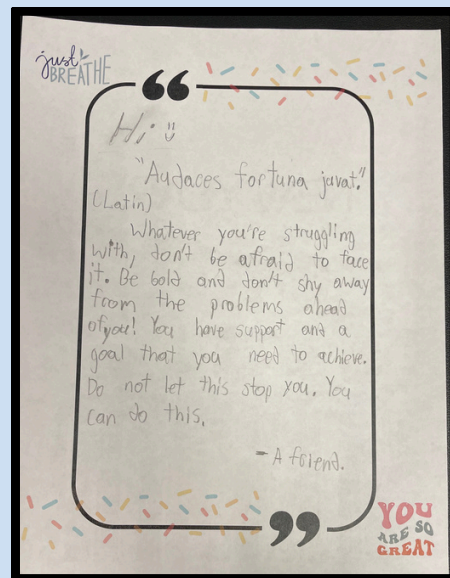 just
BREATHE
Hi :)
"Audaces fortuna juvat."
(Latin)
Whatever you're struggling
with, don't be afraid to face
it. Be bold and don't shy away
from the problems ahead
of you! You have support and a
goal that you need to achieve.
Do not let this stop you. You
can do this.
- A friend.
YOU
ARE SO
GREAT